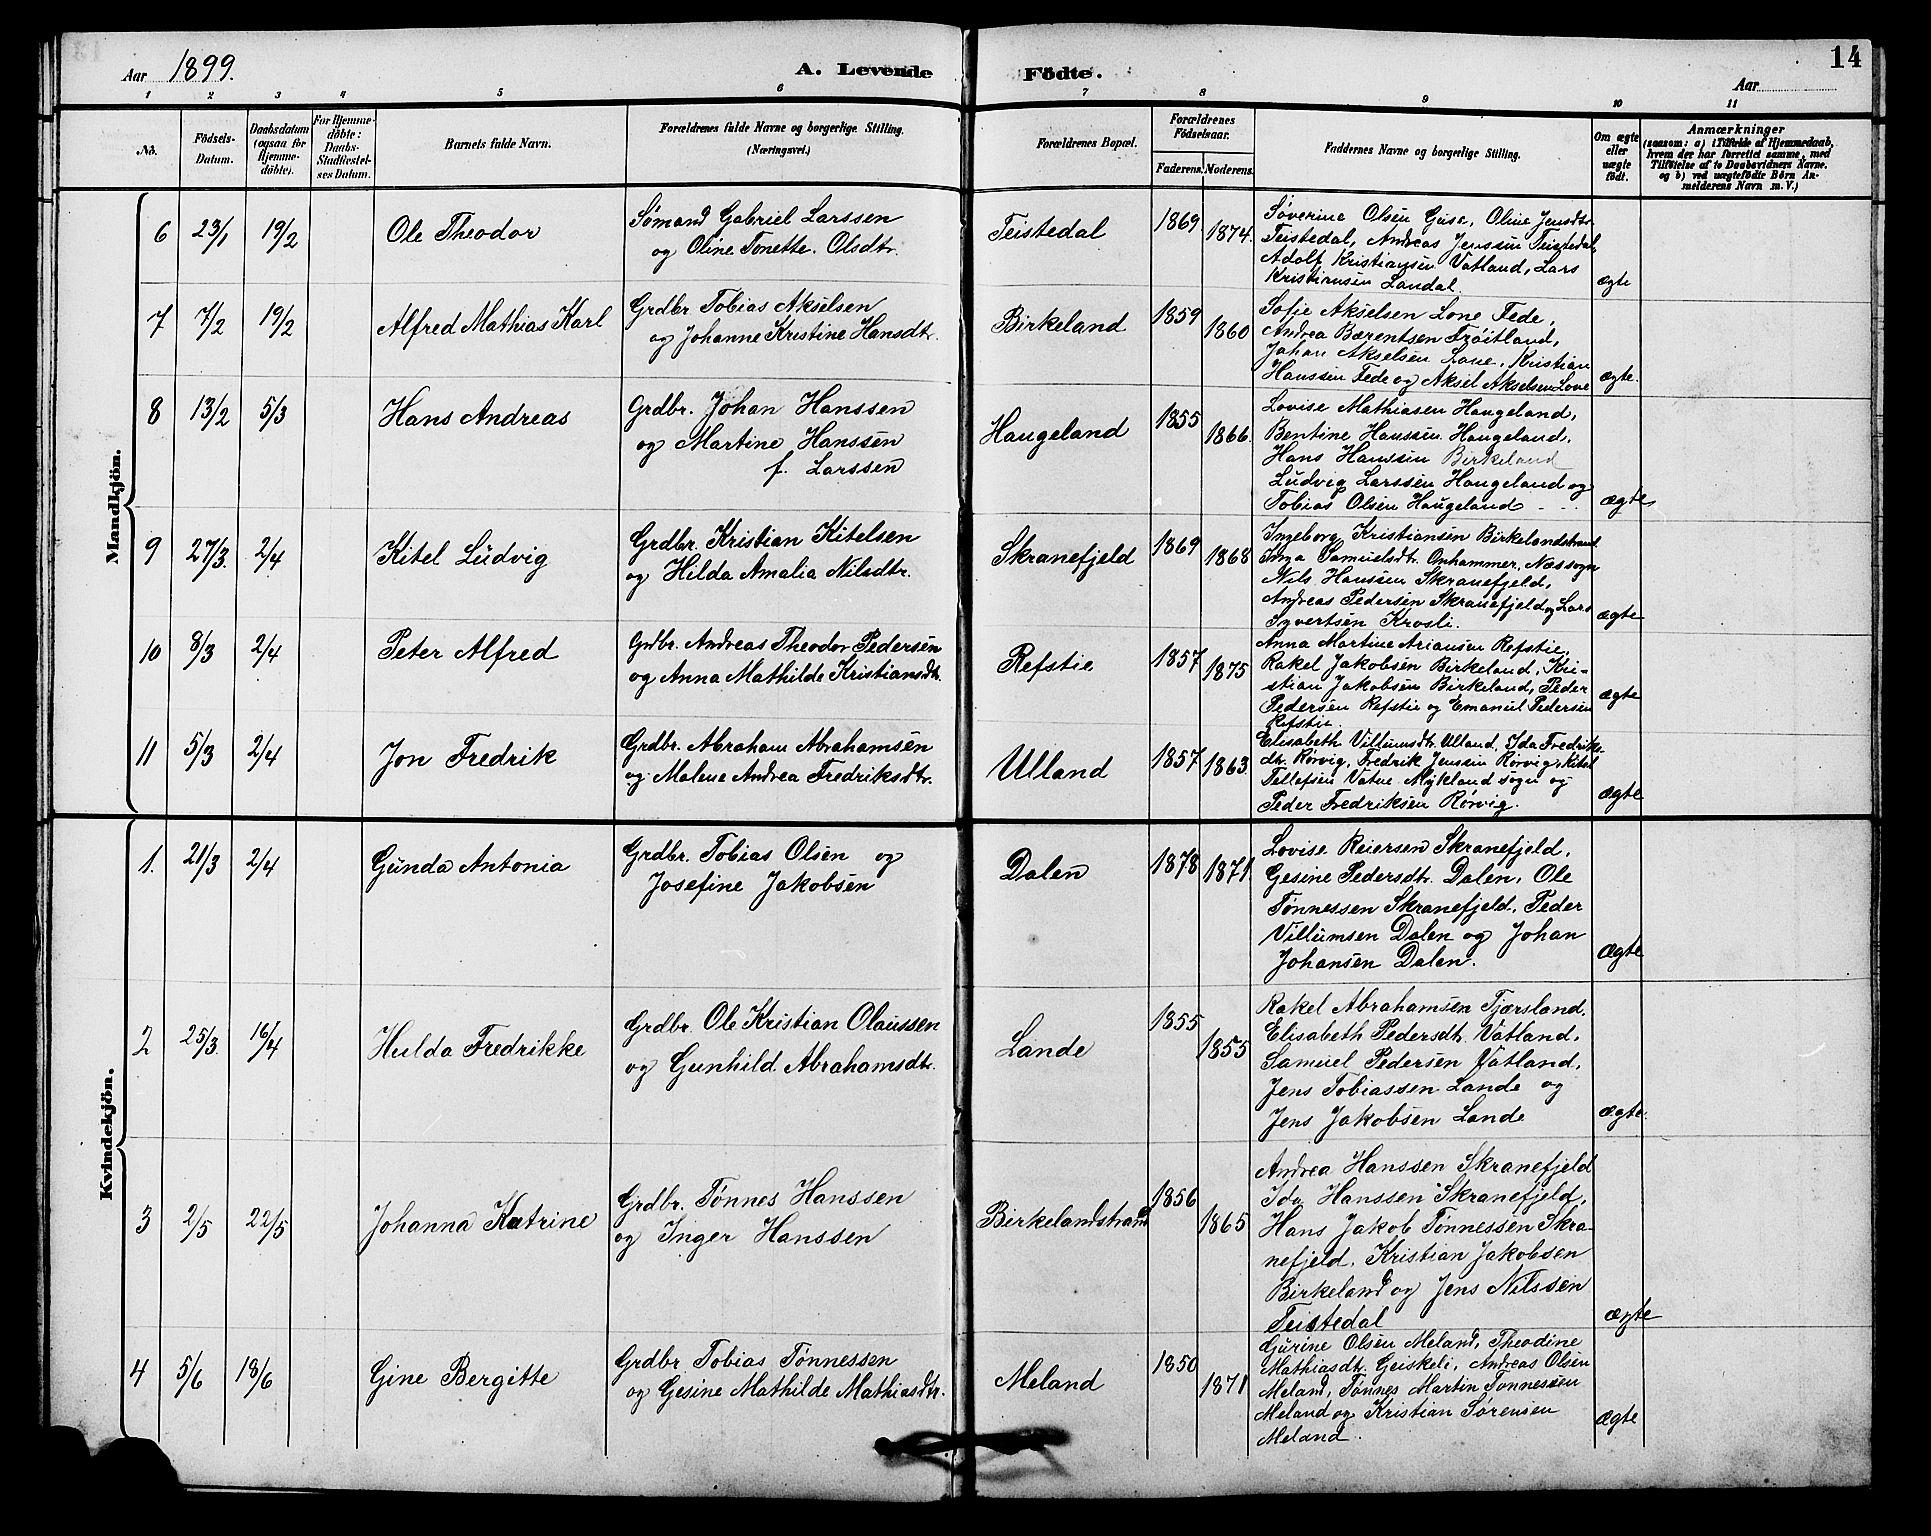 14
Aar 1899.
A. Levende Födte.
Aar
1 2 3 4 5 6 7 8 9 10 11
No.
Födsels-Datum.
Daabsdatum (ogsaa for Hjemme-döbte).
For Hjemme-döbte: Daabs-Stadfæstel-ses Datum.
Barnets fulde Navn.
Forældrenes fulde Navne og borgerlige Stilling. (Næringsvei.)
Forældrenes Bopæl.
Forældrenes Födselsaar.
Faderens. Moderens.
Faddernes Navne og borgerlige Stilling.
Om ægte eller uægte födt.
Anmærkninger
(saasom: a) i Tilfælde af Hjemmedaab,
hvem der har forrettet samme, med
Tilföielse af to Daabsvidners Navne.
og b) ved uægtefödte Börn An-
melderens Navn m. V.)
Mandkjön.
6 23/1 19/2 Ole Theodor
Sømand Gabriel Larssen
og Oline Tonette Olsdtr.
Teistedal 1869 1874.
Søverine Olsen Guse, Oline Jensdtr.
Teistedal, Andreas Jenssen Teistedal,
Adolf Kristiansen Vatland, Lars
Kristiansen Landal.
ægte
7 7/2 19/2 Alfred Mathias Karl
Grdbr Tobias Akselsen
og Johanne Kristine Hansdtr.
Birkeland 1859 1860
Sofie Akselsen Lone Fede,
Andrea Bærentsen Frøitland,
Johan Akselsen Lone, Kristian
Hanssen Fede og Aksel Akselsen Lone
ægte.
8 13/2 5/3 Hans Andreas
Grdbr. Johan Hanssen
og Martine Hanssen
f. Larssen
Haugeland 1855 1866.
Lovise Mathiasen Haugeland,
Bentine Hanssen Haugeland,
Hans Hanssen Birkeland
Ludvig Larssen Haugeland og
Tobias Olsen Haugeland
ægte
9 27/3. 2/4 Kitel Ludvig
Grdbr. Kristian Kitelsen
og Hilda Amalia Nilsdtr.
Skranefjeld 1869 1868
Ingeborg Kristiansen Birkelandstrand
Inga Samuelsdtr. Omhammer, Næssogn
Nils Hanssen Skranefjeld,
Andreas Pedersen Skranefjeld og Lars
Syvertsen Krosli.
ægte
10 8/3 2/4 Peter Alfred
Grdbr. Andreas Theodor Pedersen
og Anna Mathilde Kristiansdtr.
Refstie 1857 1875
Anna Martine Ariansen Refstie,
Rakel Jakobsen Birkeland, Kri-
stian Jakobsen Birkeland, Peder
Pedersen Refstie og Emanuel Pedersen
Refstie.
ægte
11 5/3 2/4 Jon Fredrik
Grdbr. Abraham Abrahamsen
og Malene Andrea Fredriksdtr.
Ulland 1857 1863.
Elisabeth Villumsdtr. Ulland, Ida Fredriks-
dtr. Rørvig, Fredrik Jenssen Rørvig, Kitel
Tellefsen Vatne Mykland sogn og
Peder Fredriksen Rørvig.
ægte
Kvindekjön.
1. 21/3 2/4 Gunda Antonia
Grdbr. Tobias Olsen og
Josefine Jakobsen
Dalen 1878 1871.
Lovise Reiersen Skranefjeld,
Gesine Pedersdtr. Dalen, Ole
Tønnessen Skranefjeld, Peder
Villumsen Dalen og Johan
Johansen Dalen.
Ægte
2 25/3. 16/4 Hulda Fredrikke
Grdbr. Ole Kristian Olaussen
og Gunhild Abrahamsdtr.
Lande 1855 1855
Rakel Abrahamsen Tjærsland,
Elisabeth Pedersdtr. Vatland,
Samuel Pedersen Vatland,
Jens Tobiassen Lande og
Jens Jakobsen Lande
ægte.
3 2/5 22/5 Johanna Katrine
Grdbr. Tønnes Hanssen
og Inger Hanssen
Birkelandstrand 1856 1865
Andrea Hanssen Skranefjeld
Ida Hanssen Skranefjeld,
Hans Jakob Tønnessen Skra-
nefjeld, Kristian Jakobsen
Birkeland og Jens Nilssen
Teistedal
ægte
4 5/6 18/6 Gine Bergitte
Grdbr Tobias Tønnessen
og Gesine Mathilde Mathiasdtr.
Meland 1850 1871
Gurine Olsen Meland, Theodine
Mathiasdtr. Geiskeli, Andreas Olsen
Meland, Tønnes Martin Tønnessen
Meland og Kristian Sørensen
Meland.
Ægte